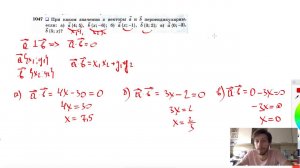 1047 При каком значении x векторы a и b перпендикулярны,
если: а) a {4; 5}, b {x; −6}; б) a {x; −1}, b {3; 2}; в) a {0; −3},
b {5; x}?
a ⊥ b ⇒ a · b = 0
a {x₁; y₁}
b {x₂; y₂}
a · b = x₁x₂ + y₁y₂
а) a · b = 4x − 30 = 0
4x = 30
x = 7,5
б) a · b = 3x − 2 = 0
3x = 2
x = 2/3
в) a · b = 0 − 3x = 0
−3x = 0
x = 0